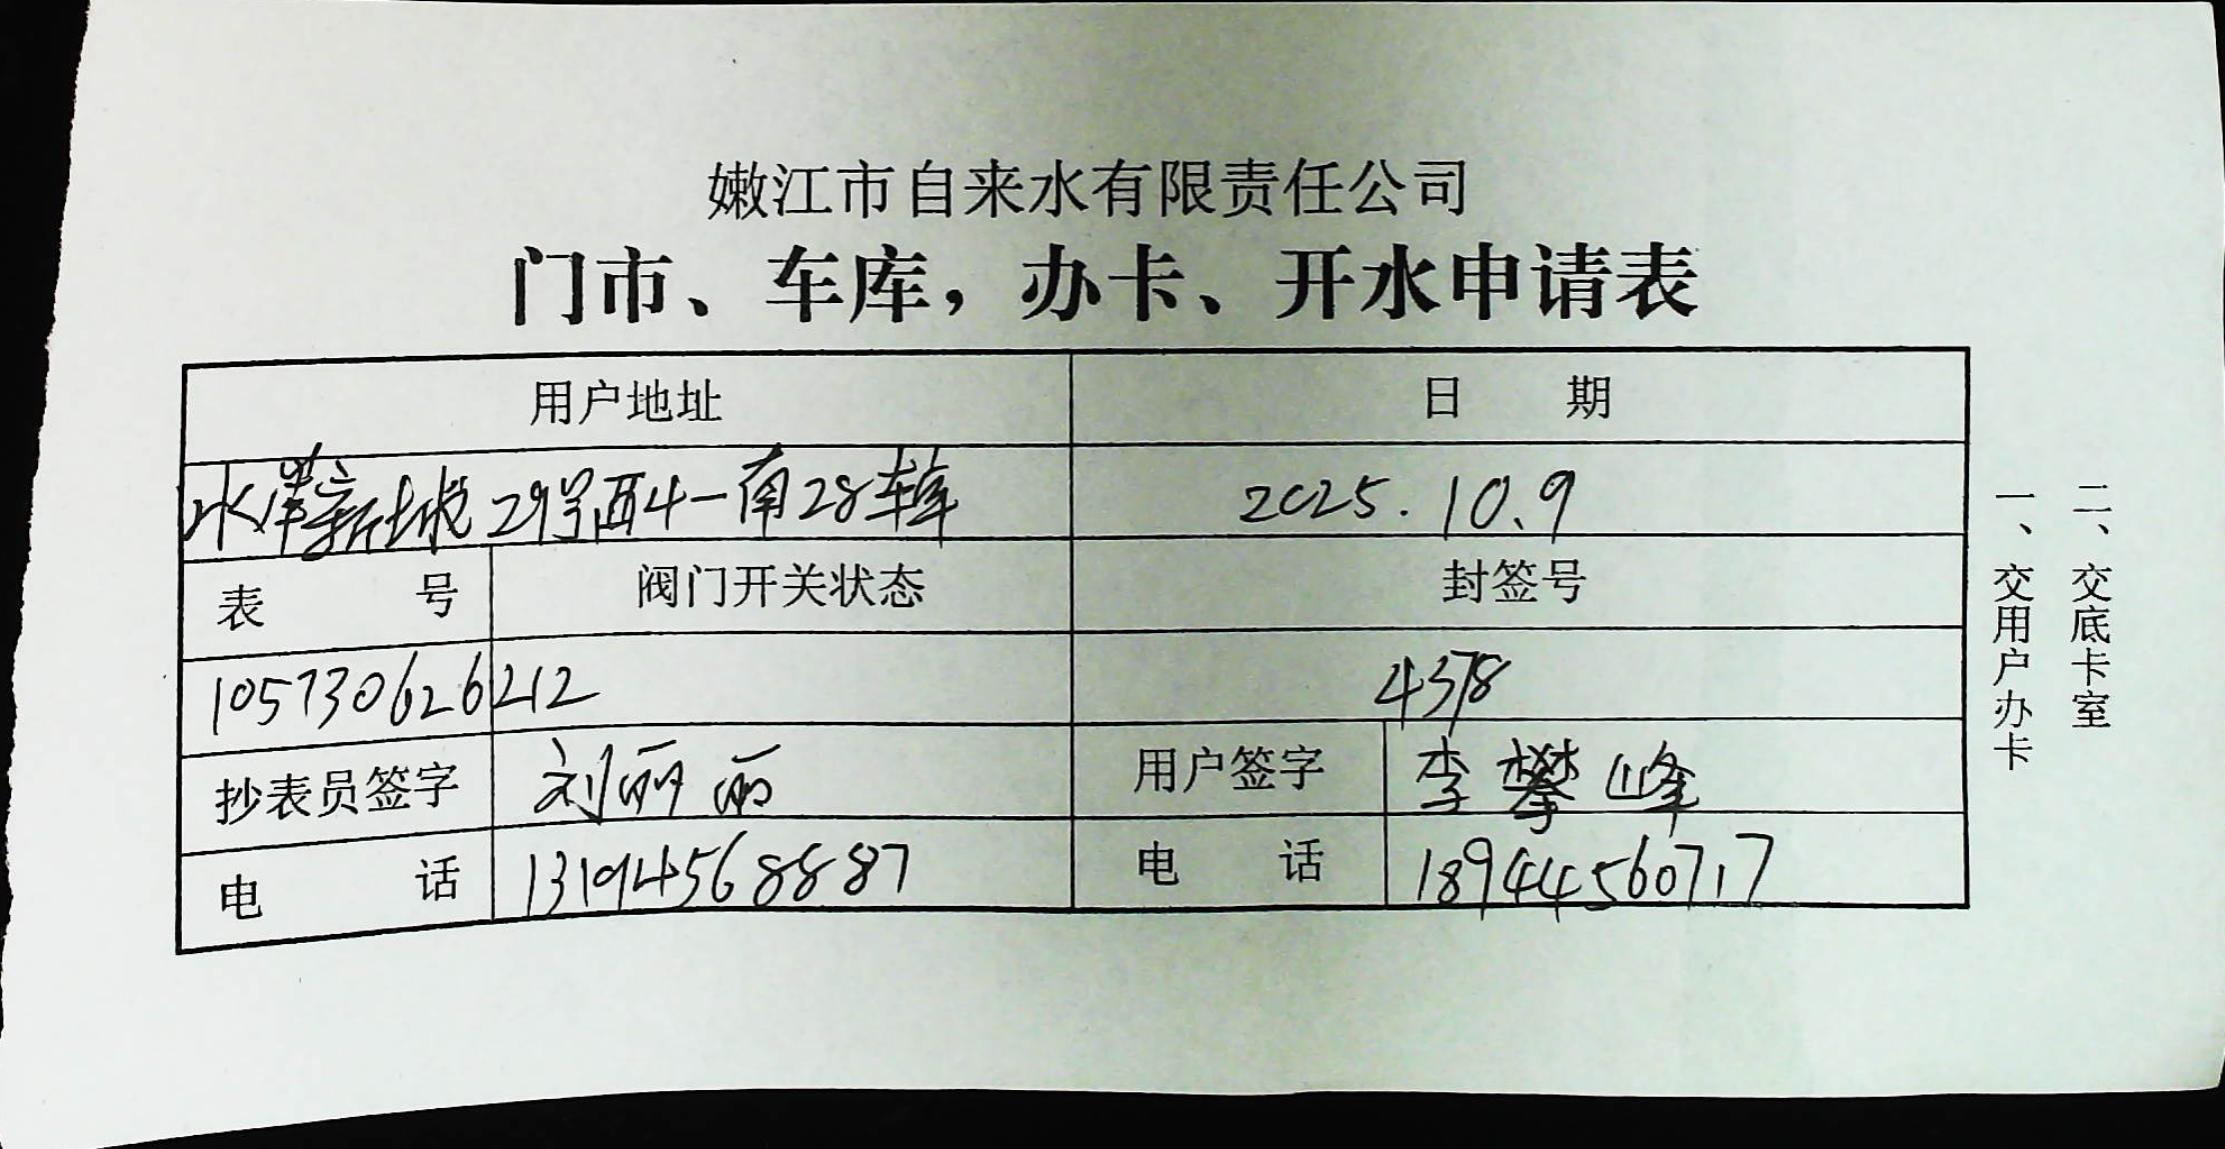 嫩江市自来水有限责任公司
门市、车库，办卡、开水申请表
用户地址 日 期
水岸新城29号西4-南28车库 2025.10.9
表 号 阀门开关状态 封签号
105730626212 4378
抄表员签字 刘丽丽 用户签字 李攀峰
电 话 13194568887 电 话 18944560717
一、交用户办卡
二、交底卡室